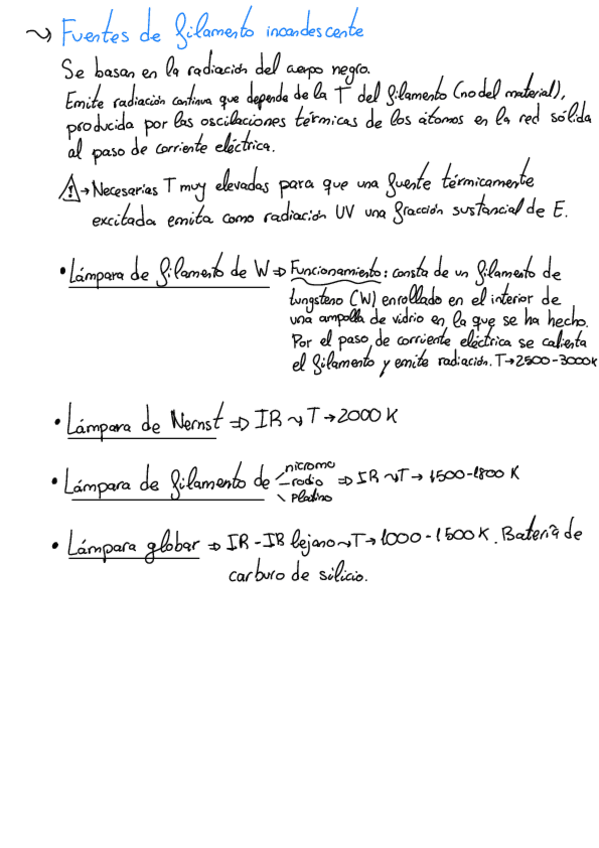 ~> Fuentes de filamento incandescente
Se basan en la radiación del cuerpo negro.
Emite radiación continua que depende de la T del filamento (no del material),
producida por las oscilaciones térmicas de los átomos en la red sólida
al paso de corriente eléctrica.
⚠→ Necesarias T muy elevadas para que una fuente térmicamente
excitada emita como radiación UV una fracción sustancial de E.
• Lámpara de filamento de W ⇒ Funcionamiento: consta de un filamento de
tungsteno (W) enrollado en el interior de
una ampolla de vidrio en la que se ha hecho.
Por el paso de corriente eléctrica se calienta
el filamento y emite radiación. T→2500-3000K
• Lámpara de Nernst ⇒ IR ~> T → 2000 K
nicromo
• Lámpara de filamento de - rodio ⇒ IR ~> T → 1500-1800 K
\ Platino
• Lámpara globar ⇒ IR - IR lejano ~> T → 1000 - 1500 K. Batería de
carburo de silicio.